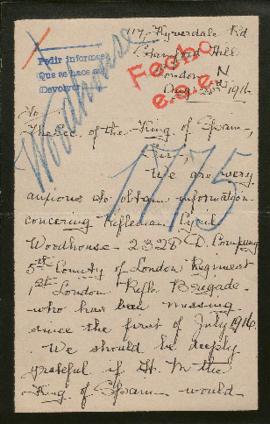 117 Kyverdale Rd
Stamford Hill
London N
Aug 23rd 1916
Pedir informes
Que se hace sin
Devolver
Fecho
Woodhouse
1775
To
The Sec. of the King of Spain,
Sir,
We are very
anxious to obtain information
concerning Rifleman Cyril
Woodhouse - 2328 D. Company
5th County of London Regiment
1st London Rifle Brigade
who has been missing
since the first of July 1916.
We should be deeply
grateful if H. M the
King of Spain would